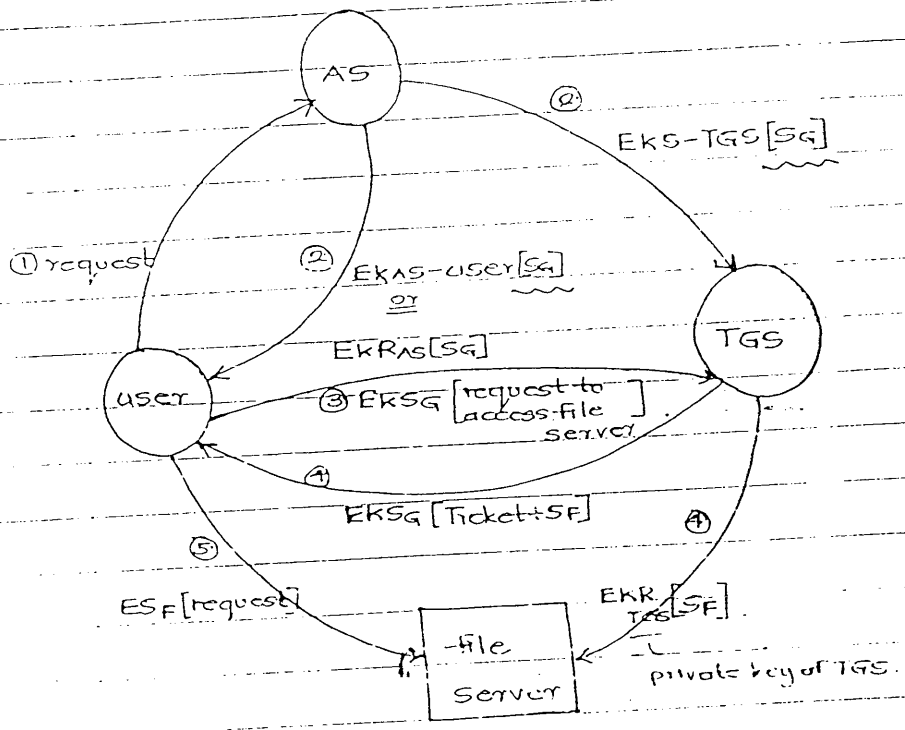 AS
②
EKS-TGS[SG]
① request
②
EKAS-user[SG]
or
EKRAS[SG]
TGS
user
③ EKSG [request to
access file
server]
④
EKSG [Ticket+SF]
④
⑤
ESF[request]
EKR
TGS[SF]
private key of TGS.
file
server